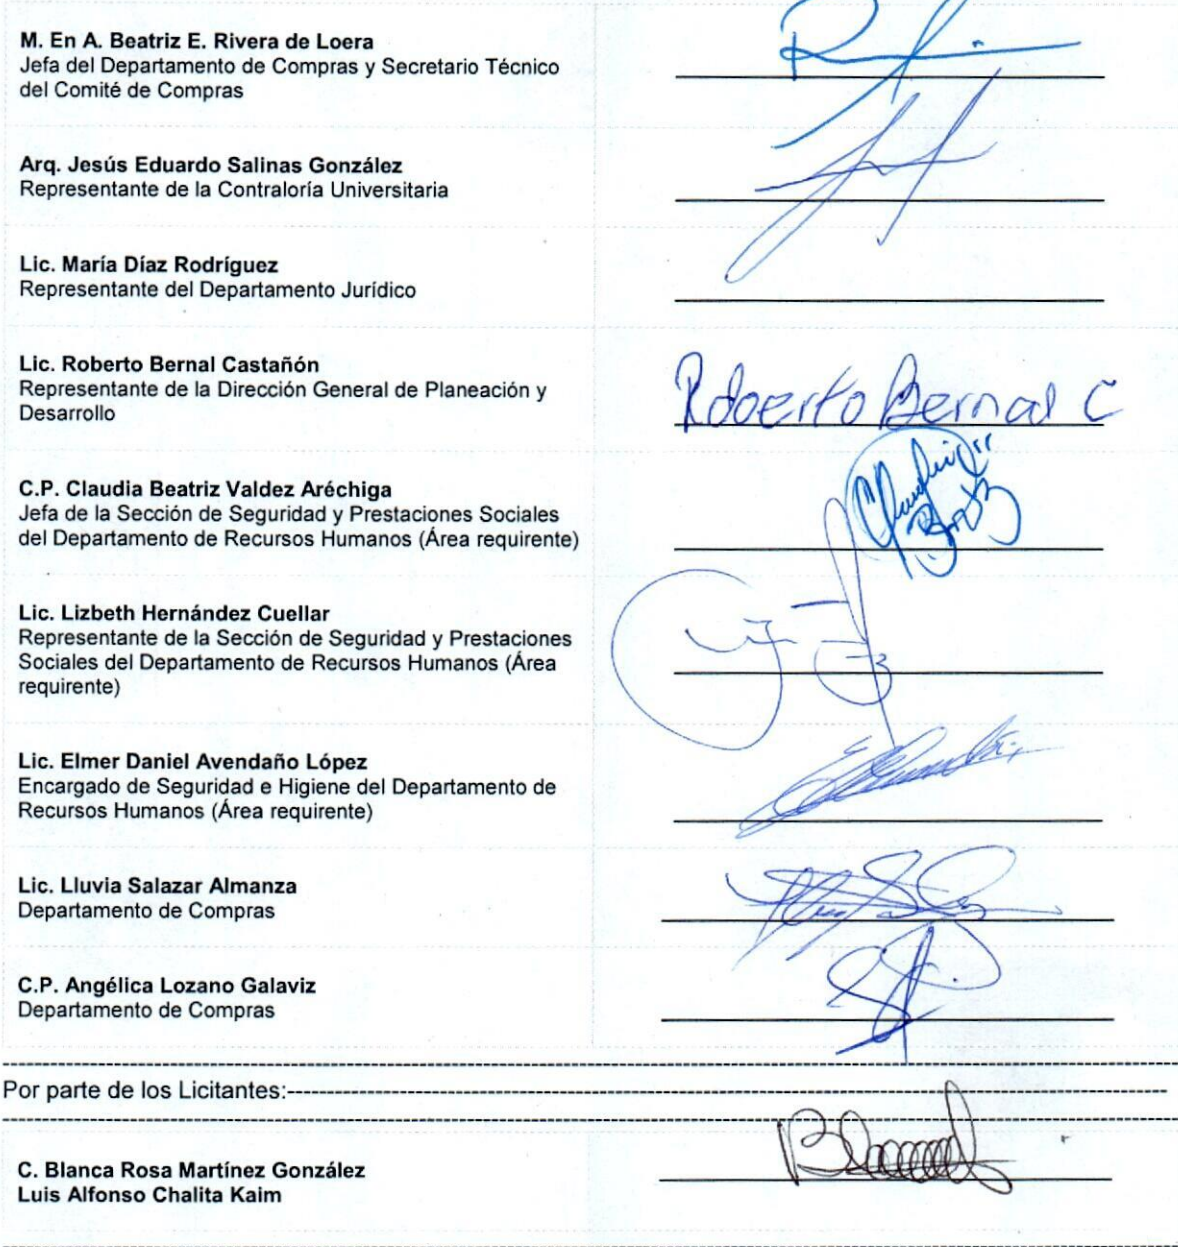 M. En A. Beatriz E. Rivera de Loera
Jefa del Departamento de Compras y Secretario Técnico
del Comité de Compras
Arq. Jesús Eduardo Salinas González
Representante de la Contraloría Universitaria
Lic. María Díaz Rodríguez
Representante del Departamento Jurídico
Lic. Roberto Bernal Castañón
Representante de la Dirección General de Planeación y
Desarrollo
Roberto Bernal C
C.P. Claudia Beatriz Valdez Aréchiga
Jefa de la Sección de Seguridad y Prestaciones Sociales
del Departamento de Recursos Humanos (Área requirente)
Lic. Lizbeth Hernández Cuellar
Representante de la Sección de Seguridad y Prestaciones
Sociales del Departamento de Recursos Humanos (Área
requirente)
Lic. Elmer Daniel Avendaño López
Encargado de Seguridad e Higiene del Departamento de
Recursos Humanos (Área requirente)
Lic. Lluvia Salazar Almanza
Departamento de Compras
C.P. Angélica Lozano Galaviz
Departamento de Compras
Por parte de los Licitantes:
C. Blanca Rosa Martínez González
Luis Alfonso Chalita Kaim